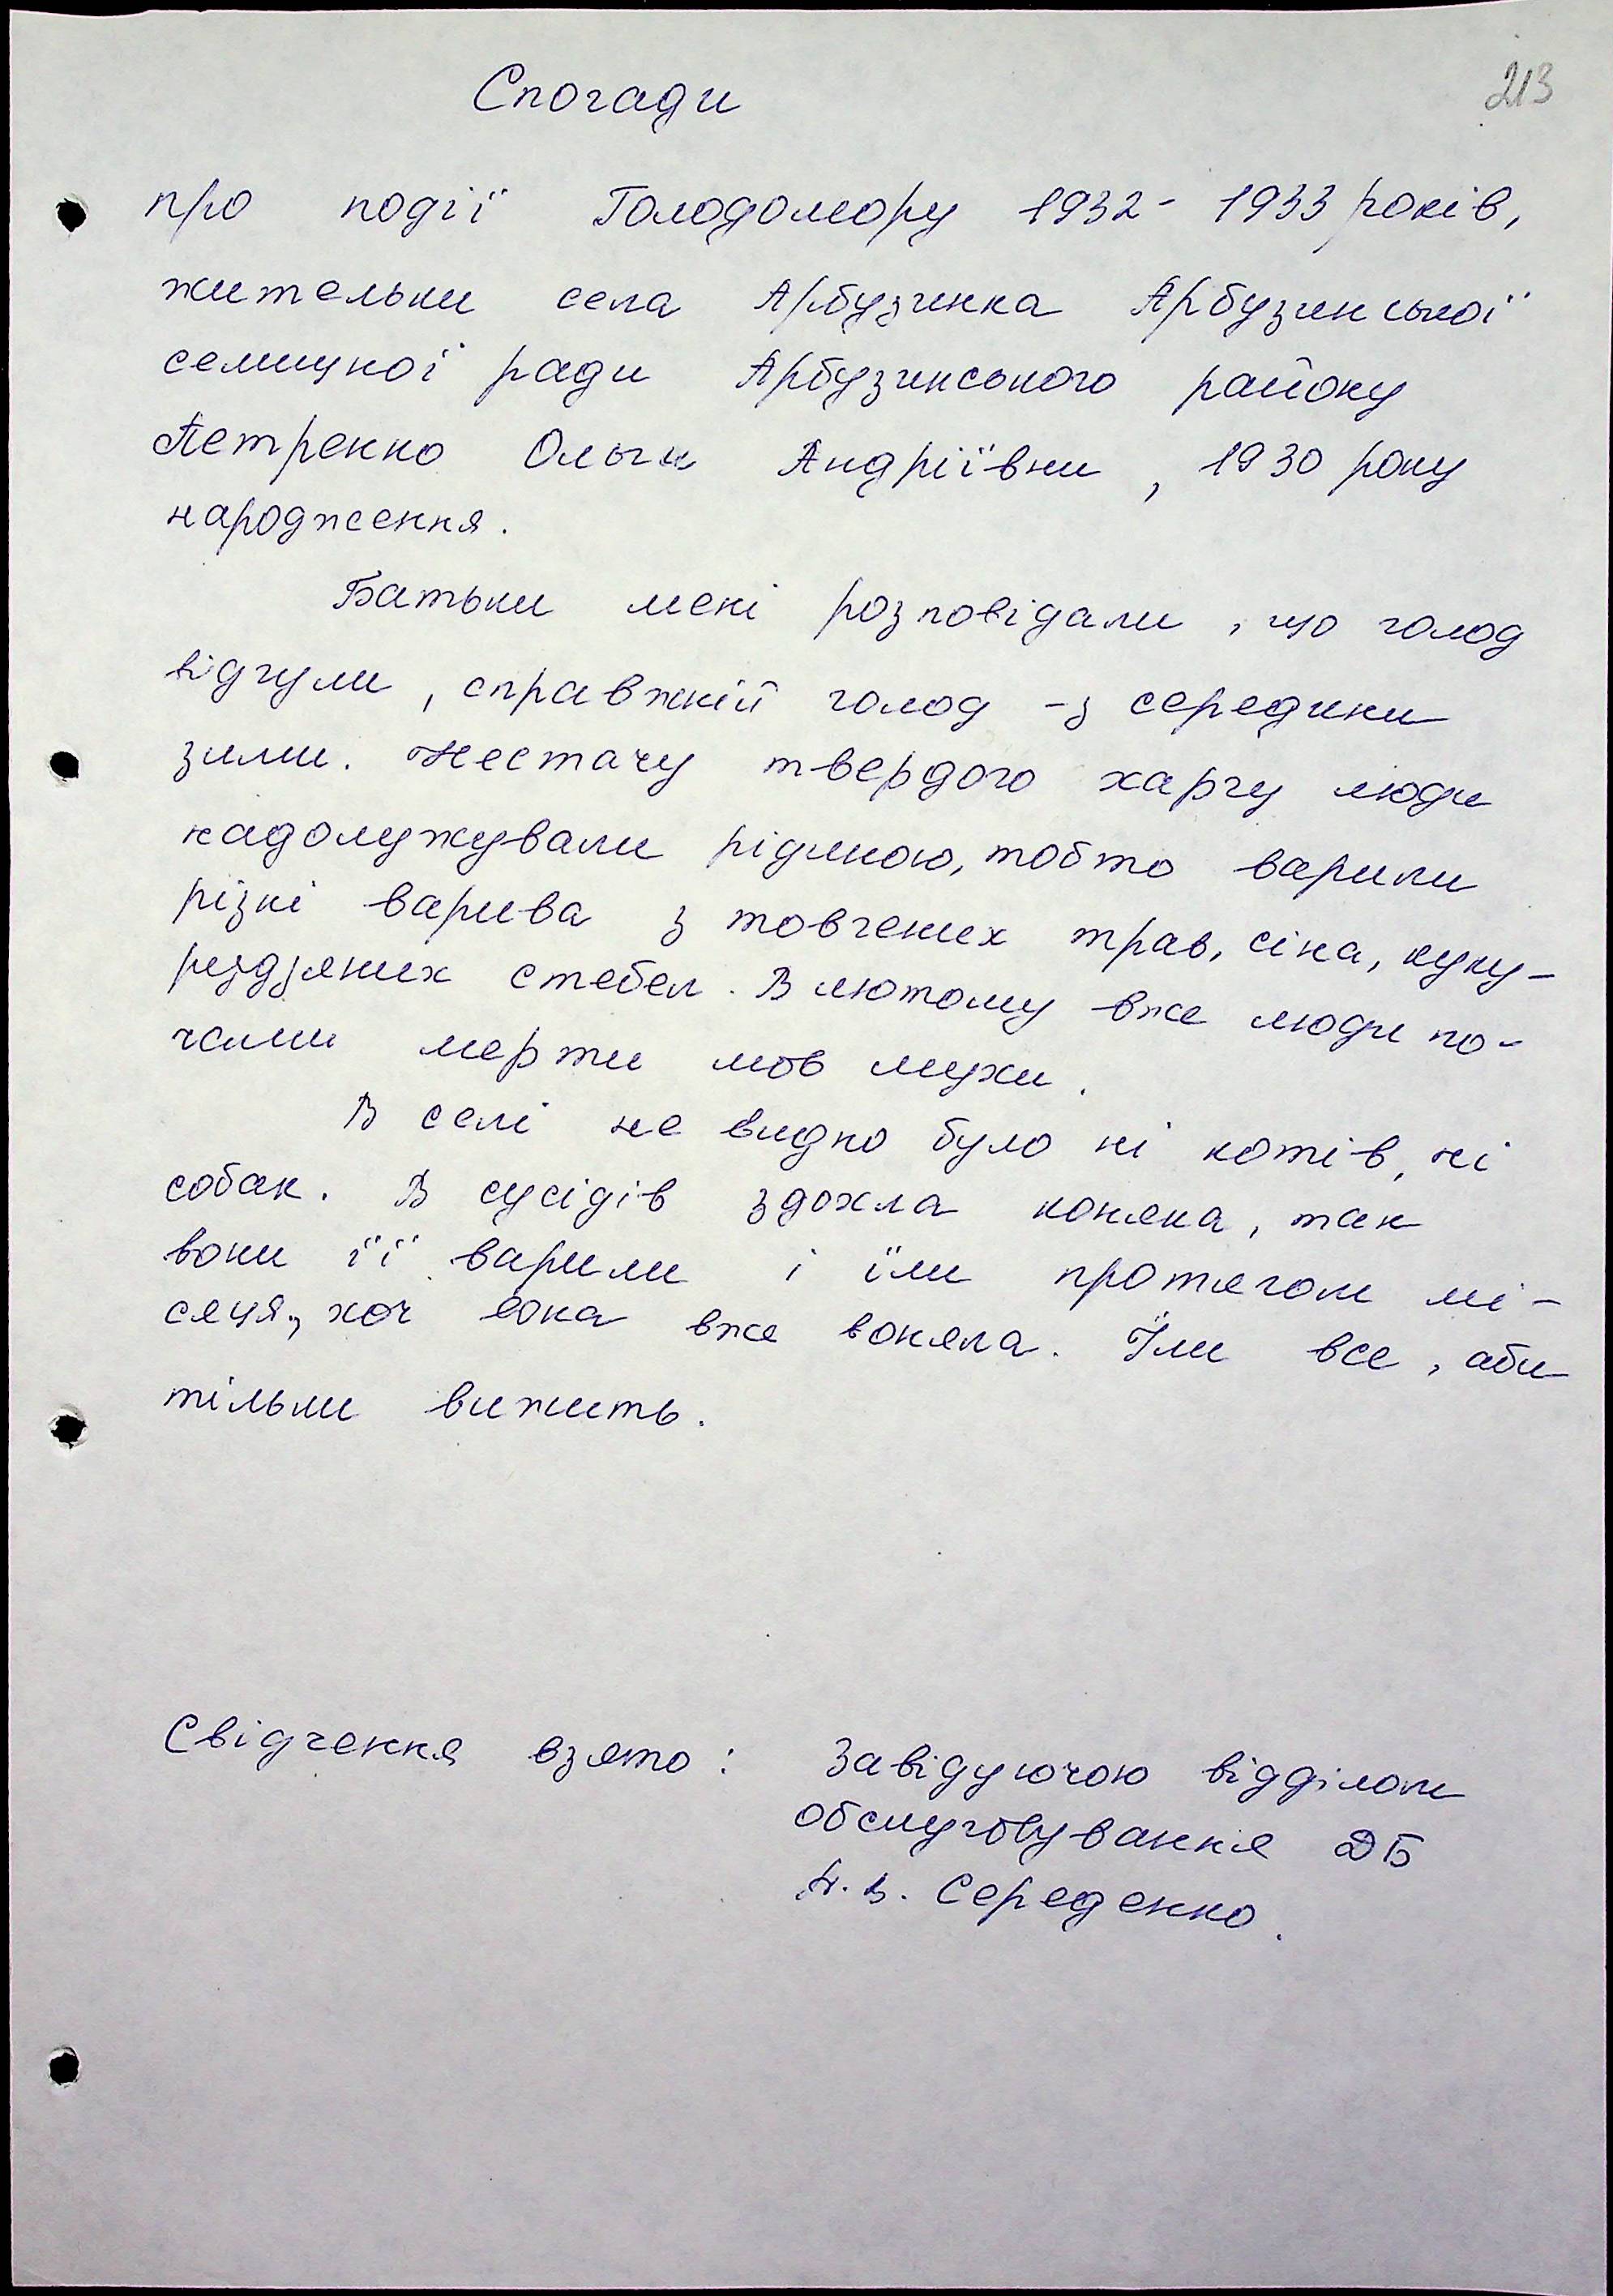 213
Спогади
про події Голодомору 1932- 1933 років,
жительки села Арбузинка Арбузинської
селищної ради Арбузинського району
Петренко Ольги Андріївни, 1930 року
народження.
Батьки мені розповідали, що голод
відчули, справжній голод - з середини
зими. Нестачу твердого харчу люди
надолужували рідиною, тобто варили
різні варива з товчених трав, сіна, куку-
рудзяних стебел. В лютому вже люди по-
чали мерти мов мухи.
В селі не видно було ні котів, ні
собак. В сусідів здохла коняка, так
вони її варили і їли протягом мі-
сяця, хоч вона вже воняла. Їли все, аби
тільки вижить.
Свідчення взято: Завідуючою відділом
обслуговування ДБ
Н.В. Середенко.